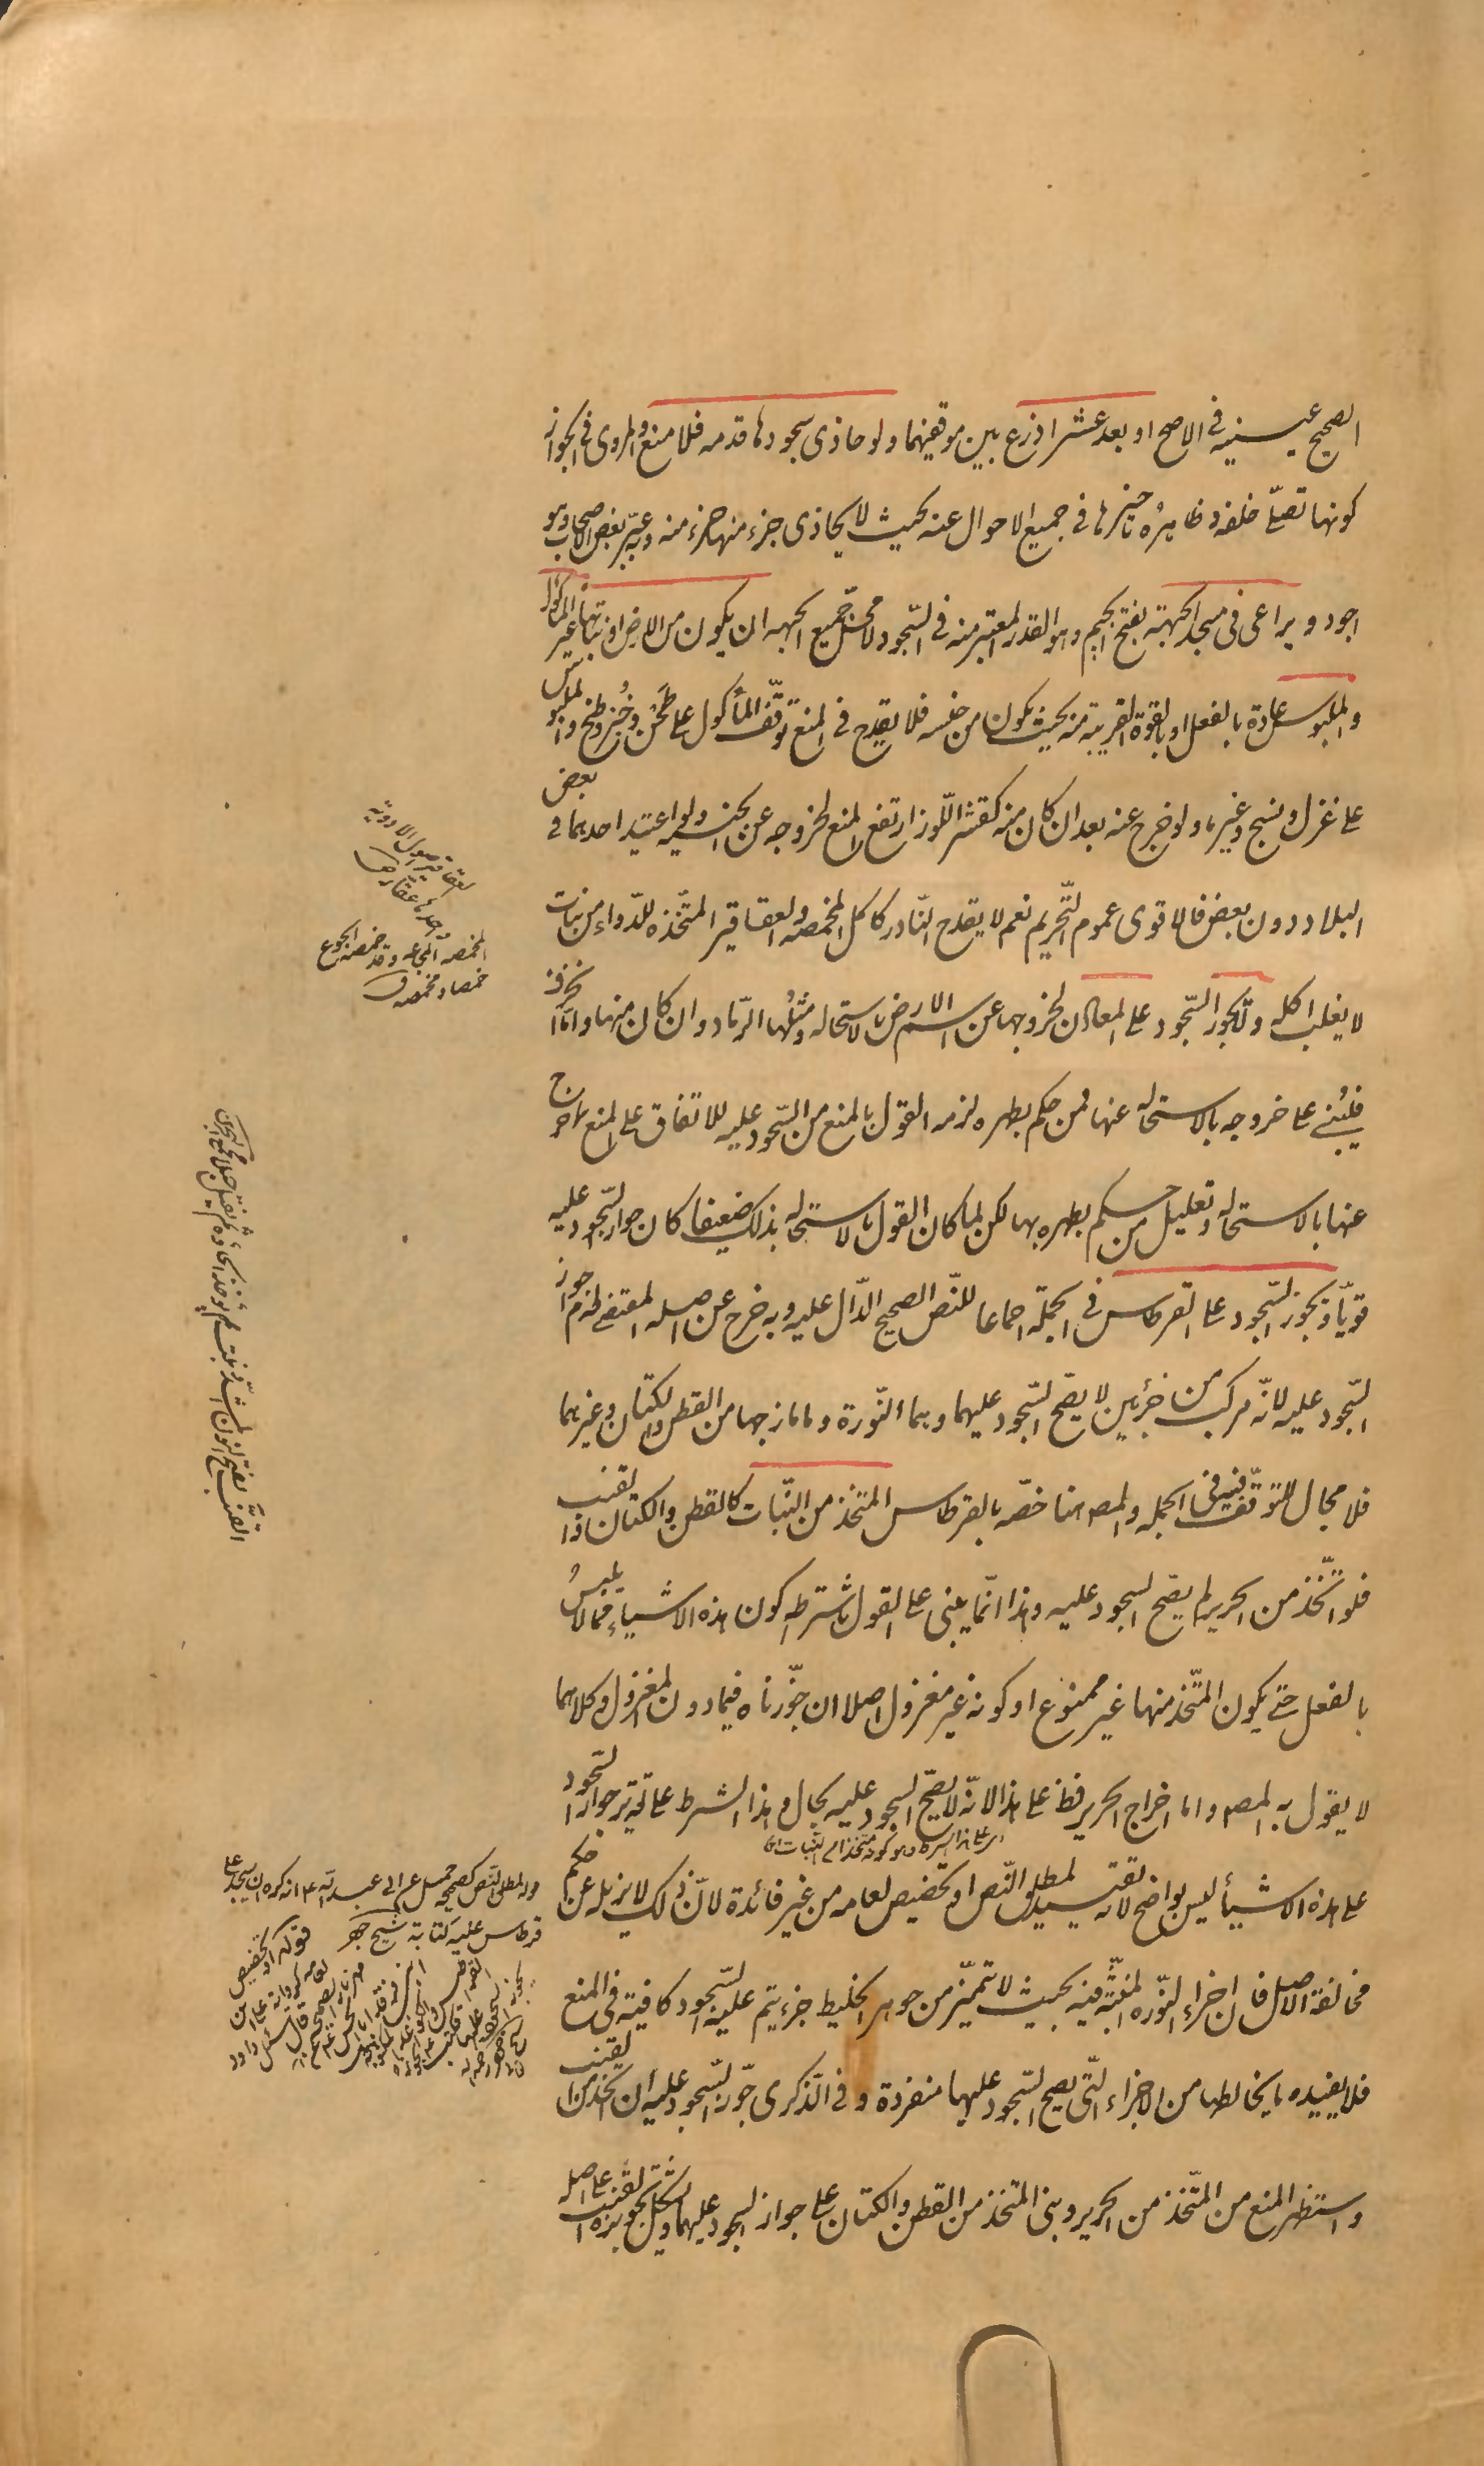 الصحيح عينيه في الاصح او بعد عشر اذرع بين موقفيهما ولو حاذى سجودها قدمه فلا منع والمروى في الجواز
كونها تصلي خلفه وظاهره تاخيرها في جميع الاحوال عنه بحيث لا يحاذى جزء منها جزء منه وعبر بعض الاصحاب وهو
اجود ويراعى فى مسجد الجبهة بفتح الجيم وهو القدر المعتبر منه في السجود لا محل جميع الجبهه ان يكون من الارض او نباتها غير الماكول
والملبوس عادة بالفعل او بالقوة القريبة منه بحيث يكون من جنسه فلا يقدح في المنع توقف المأكول على طحن وخبز وطبخ والملبوس
على غزل ونسج وغيرها ولو خرج عنه بعد ان كان منه كقشر اللوز ارتفع المنع لخروجه عن الجنسيه ولو اعتيد احدهما في بعض
البلاد دون بعض فالاقوى عموم التحريم نعم لا يقدح النادر كاكل المخمصه والعقاقير المتخذه للدواء من نبات
لا يغلب اكله ولا يجوز السجود على المعادن لخروجها عن اسم الارض بالاستحاله ومثلها الرماد وان كان منها واما الخزف
فيبنى على خروجه بالاستحاله عنها فمن حكم بطهره لزمه القول بالمنع من السجود عليه للاتفاق على المنع مما خرج
عنها بالاستحاله وتعليل من حكم بطهره بها لكن لما كان القول بالاستحاله بذلك ضعيفا كان جواز السجود عليه
قويا ويجوز السجود على القرطاس في الجملة اجماعا للنص الصحيح الدال عليه وبه خرج عن اصله المقتضى لعدم جواز
السجود عليه لانه مركب من جزئين لا يصح السجود عليهما وهما النورة وما مازجها من القطن والكتان وغيرهما
فلا مجال للتوقف فيه في الجمله والمصه هنا خصه بالقرطاس المتخذ من النبات كالقطن والكتان والقنب
فلو اتخذ من الحرير لم يصح السجود عليه وهذا انما يبنى على القول باشتراط كون هذه الاشياء مما لا يلبس
بالفعل حتى يكون المتخذ منها غير ممنوع او كونه غير مغزول اصلا ان جوزناه فيما دون المغزول وكلاهما
لا يقول به المصه واما اخراج الحرير فظ على هذا لانه لا يصح السجود عليه بحال وهذا الشرط على تقدير جواز السجود
على هذه الاشيأ ليس بواضح لانه تقييد لمطلق النص او تخصيص لعامه من غير فائدة لان ذلك لا يزيله عن حكم
مخالفة الاصل فان اجزاء النوره المنبثه فيه بحيث لا تتميز من جوهر الخليط جزء يتم عليه السجود كافية في المنع
فلا يفيده ما يخالطها من الاجزاء التي يصح السجود عليها منفردة وفى الذكرى جوز السجود عليه ان اتخذ من القنب
واستظهر المنع من المتخذ من الحرير وبنى المتخذ من القطن والكتان على جواز السجود عليهما ويشكل تجويزه القنب على اصله
العقاقير اصول الادوية
واحدها عقار ص
المخمصه المجاعه وقد خمصه الجوع
خمصا ومخمصه ق